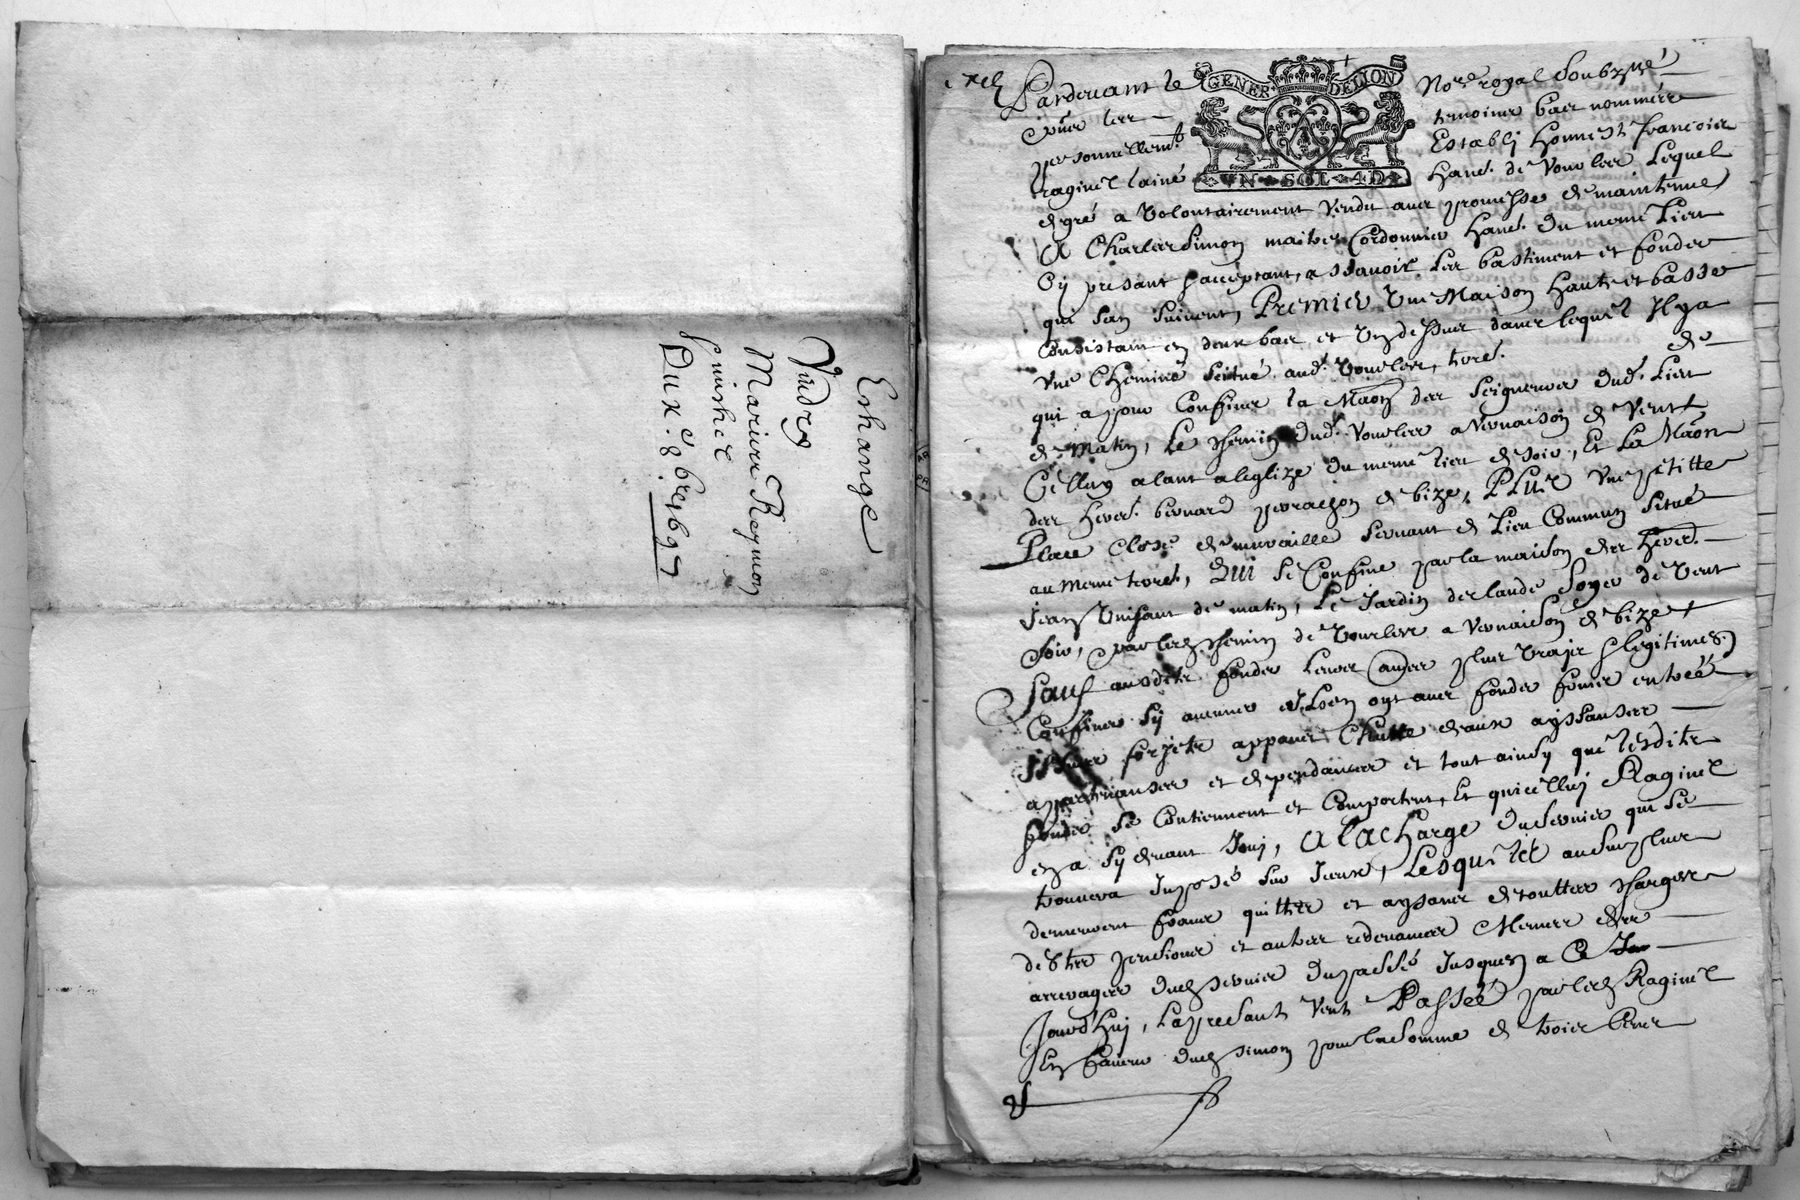 Eshange
Vindry
Mariure Reymon
Guishel
Du x.e 8bre 1697
Pardevant le
GENER DE LION
No.re royal Soubzné
pñce les
temoins bas nommés
personnellemt.
Establj honnest françois
raginel lainé
UN SOL 4D
Hant. de Vourles Lequel
de gré a Volontairement Vendu avec promesse de maintenue
A Charles Simon maitre Cordonnier hant. du meme Lieu
Cy present & acceptant, assavoir Les bastiment et fonder
qui s'en suivent, Premier Une Maison haute et basse
Consistant en deux bas et Un dessus dans lequel Il y a
Une Cheminé scitué aud. Vourles, tores. de
qui a pour Confins la Maon des seigneurs dud. Lieu
de matin, Le chemin dud. Vourles a Vernaison de Vent
Celluy alant a leglize du meme lieu de soir, Et La Maon
des hers. bernard perrachon de bize, Plus Une petitte
Place Close de muraille servant de Lieu Commun Situé
au meme tores, Qui se Confine par la maison des hers.
Jean de matin, Le Jardin de Claude Soyer de Vent
soir, par led. chemin de Vourles a Vernaison de bize
Sauf ausdits fonder Leurs autres plus Vrajs & legitimes
Confins sy aucuns Ils en ont avec fonder fonier entrée
issue forjets appans Chutte deaux ayssanses
appartenanses et dependances et tout ainsy que lesdits
fonder se Contiennent et Comportent, Et quicelluj Raginel
en a sy devant Jouj, A la charge du servier qui se
trouvera Imposé sur Jceux, Lesquels au surplus
demeurent franc quitter et ayssance de toutter charger
dettes pensions et autres redevances Memes des
arrerages dud. servier du passés Jusques a Ce
Jourd'huj, La presant Vent Passée par led. Raginel
En faveur dud. Simon pour la Somme de trois Cens